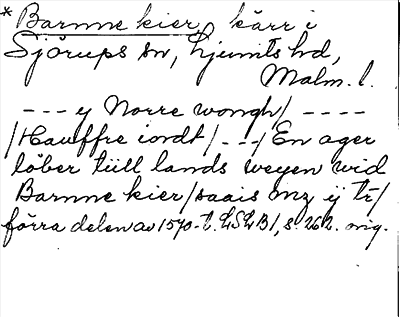 * Barnne kier, kärr i
Sjörups sn, Ljunits hd,
Malm. l.
--- y Norre wongh/ ----
/Hauffre iordt/ ---/ En ager
löber tiill lands weyen wid
Barnne kier/saais mz ij tr/
förra delen av 1570-t. LSLB1, s. 262. orig.